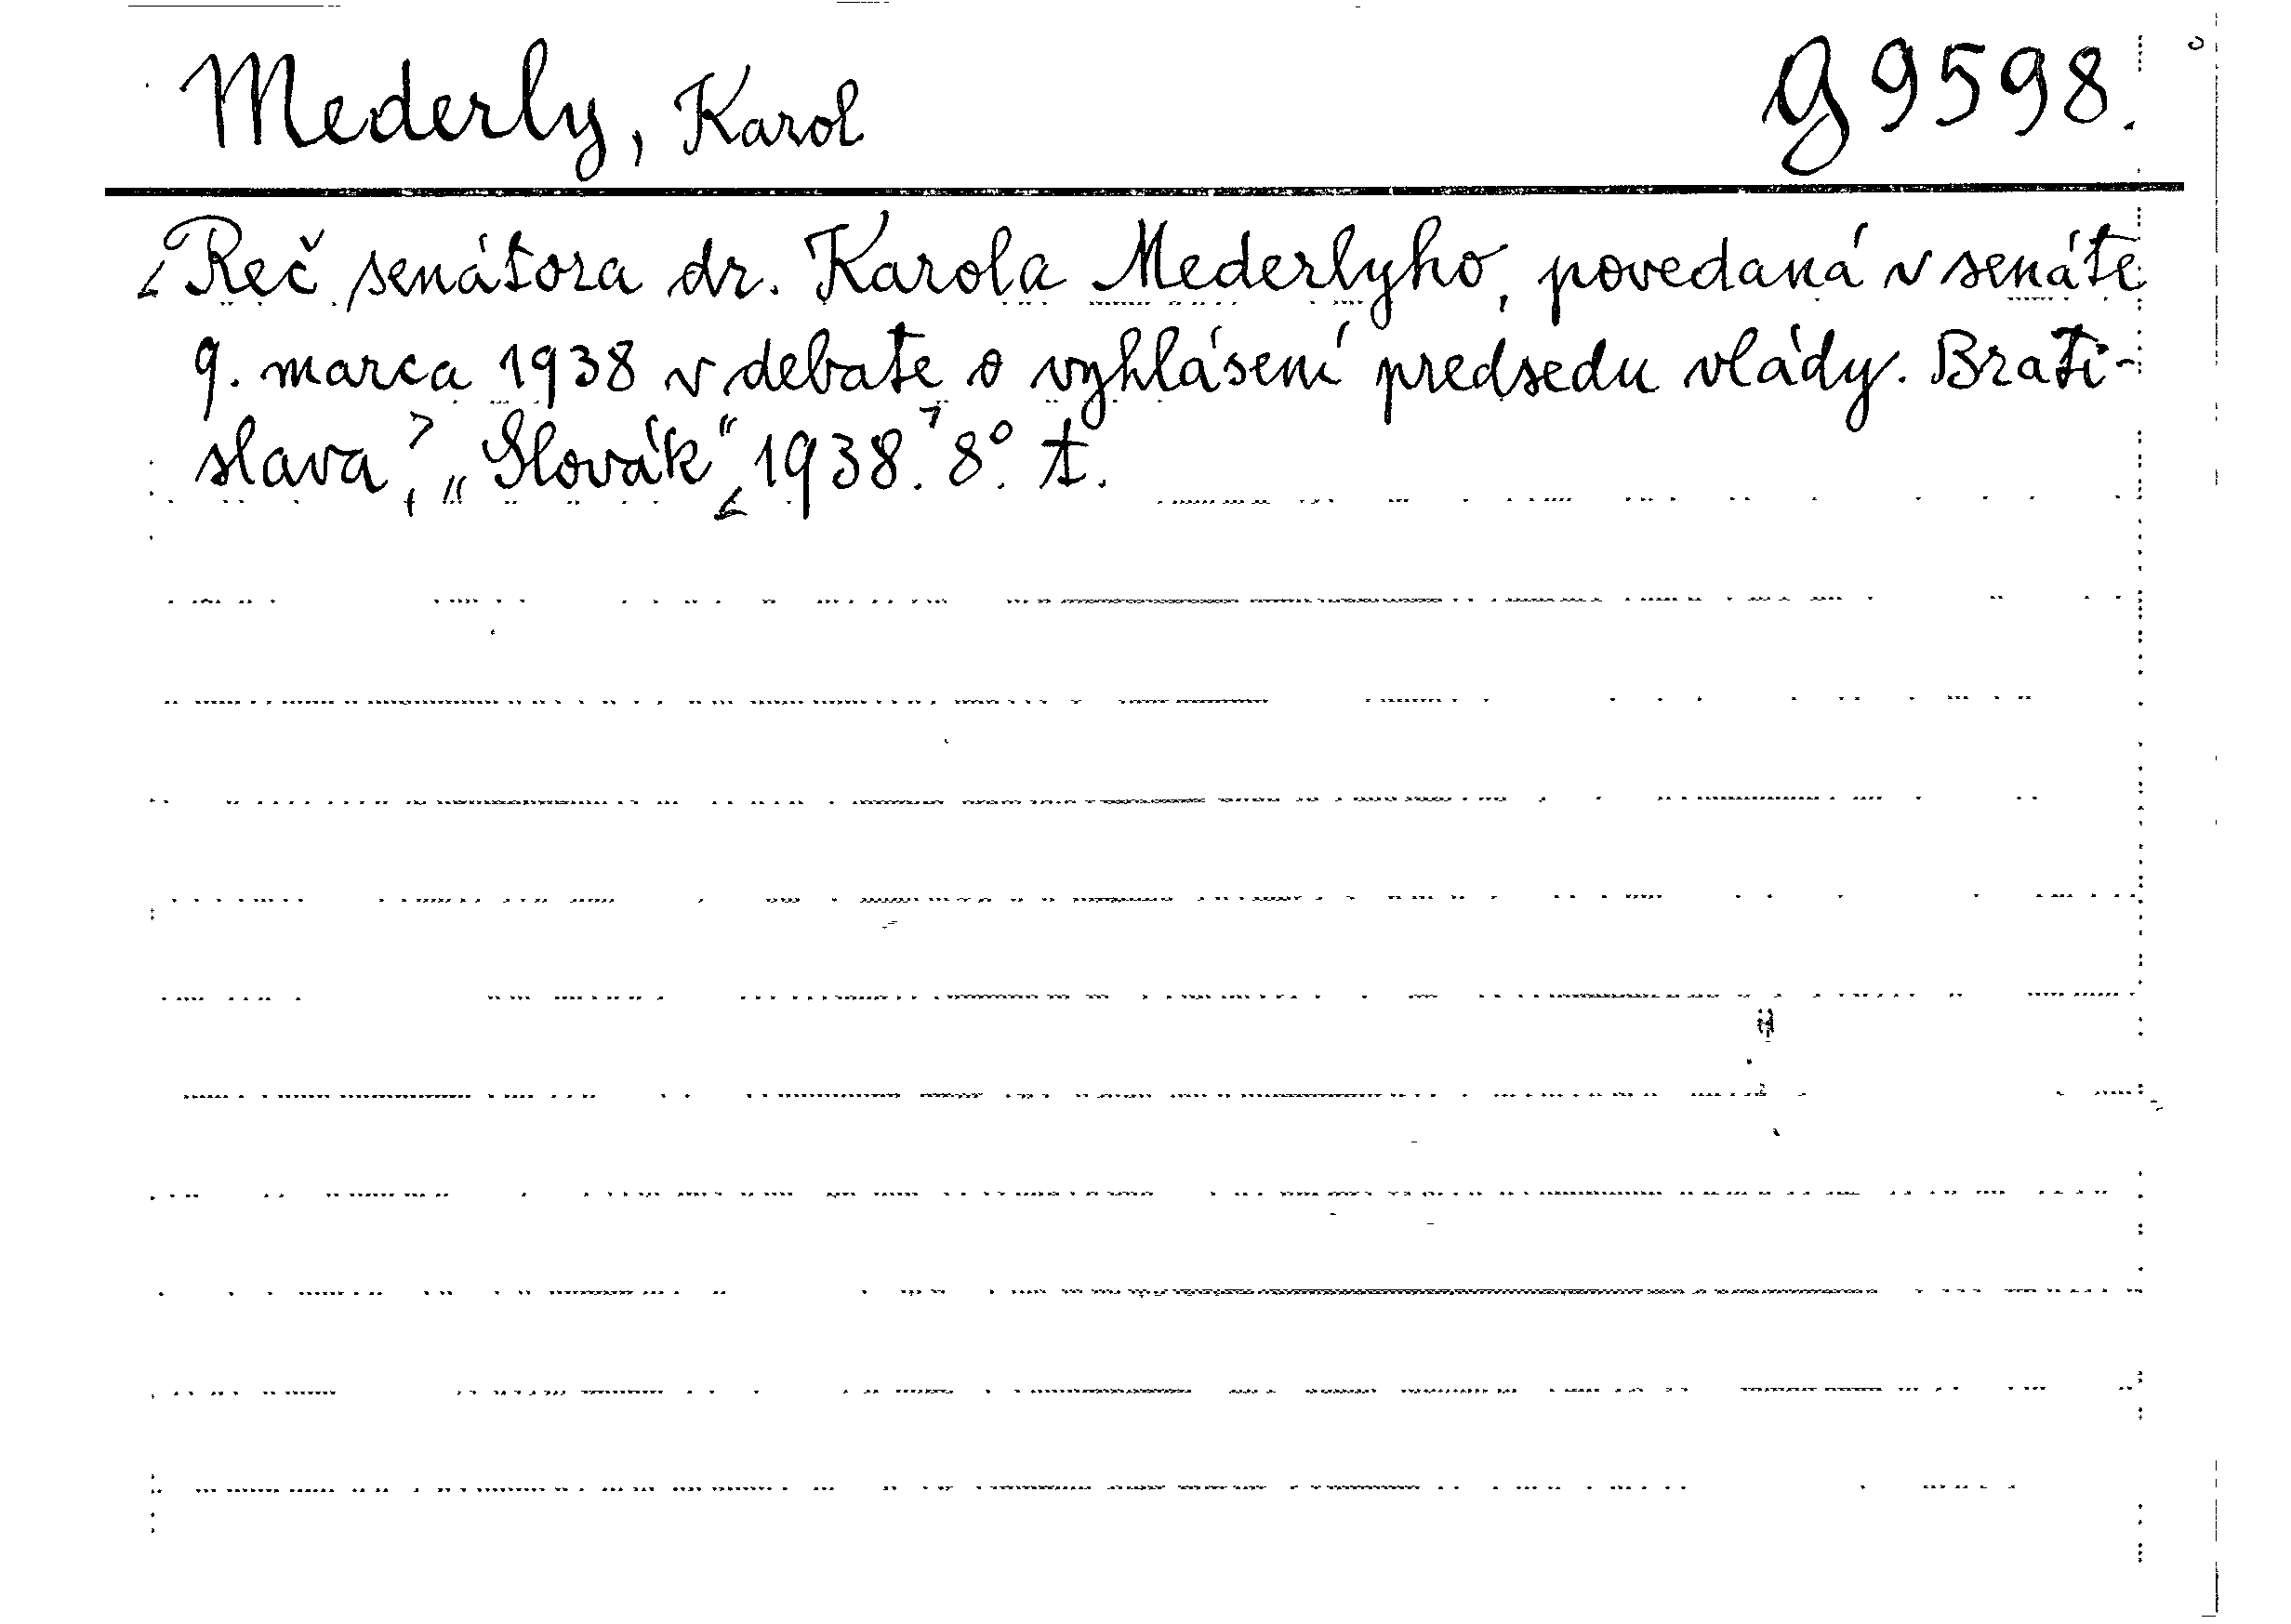 Mederly, Karol G 9598.
Reč senátora dr. Karola Mederlyho, povedaná v senáte
9. marca 1938 v debate o vyhlásení predsedu vlády. Brati-
slava, „Slovák“, 1938. 8°. t.